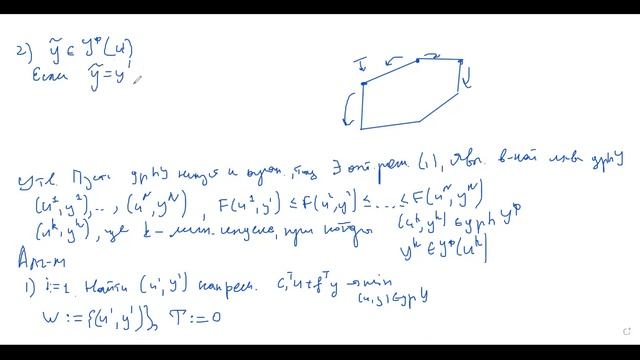 2) ỹ ∈ Y^P(u')
Если ỹ = y'
I
Утв. Пусть gph Y непуст и огран., тогда ∃ опт. реш. (1), явл. в-ной мн-ва gph Y
(u¹, y¹), ..., (u^N, y^N), F(u¹, y¹) ≤ F(u², y²) ≤ ... ≤ F(u^N, y^N)
(u^k, y^k), где k – мин. индекс, при котором (u^k, y^k) ∈ gph Y^P
y^k ∈ Y^P(u^k)
Алг-м
1) i=1. Найти (u¹, y¹) c₁ᵀu + fᵀy → min
(u,y) ∈ gph Y
W := {(u¹, y¹)}, T := ∅